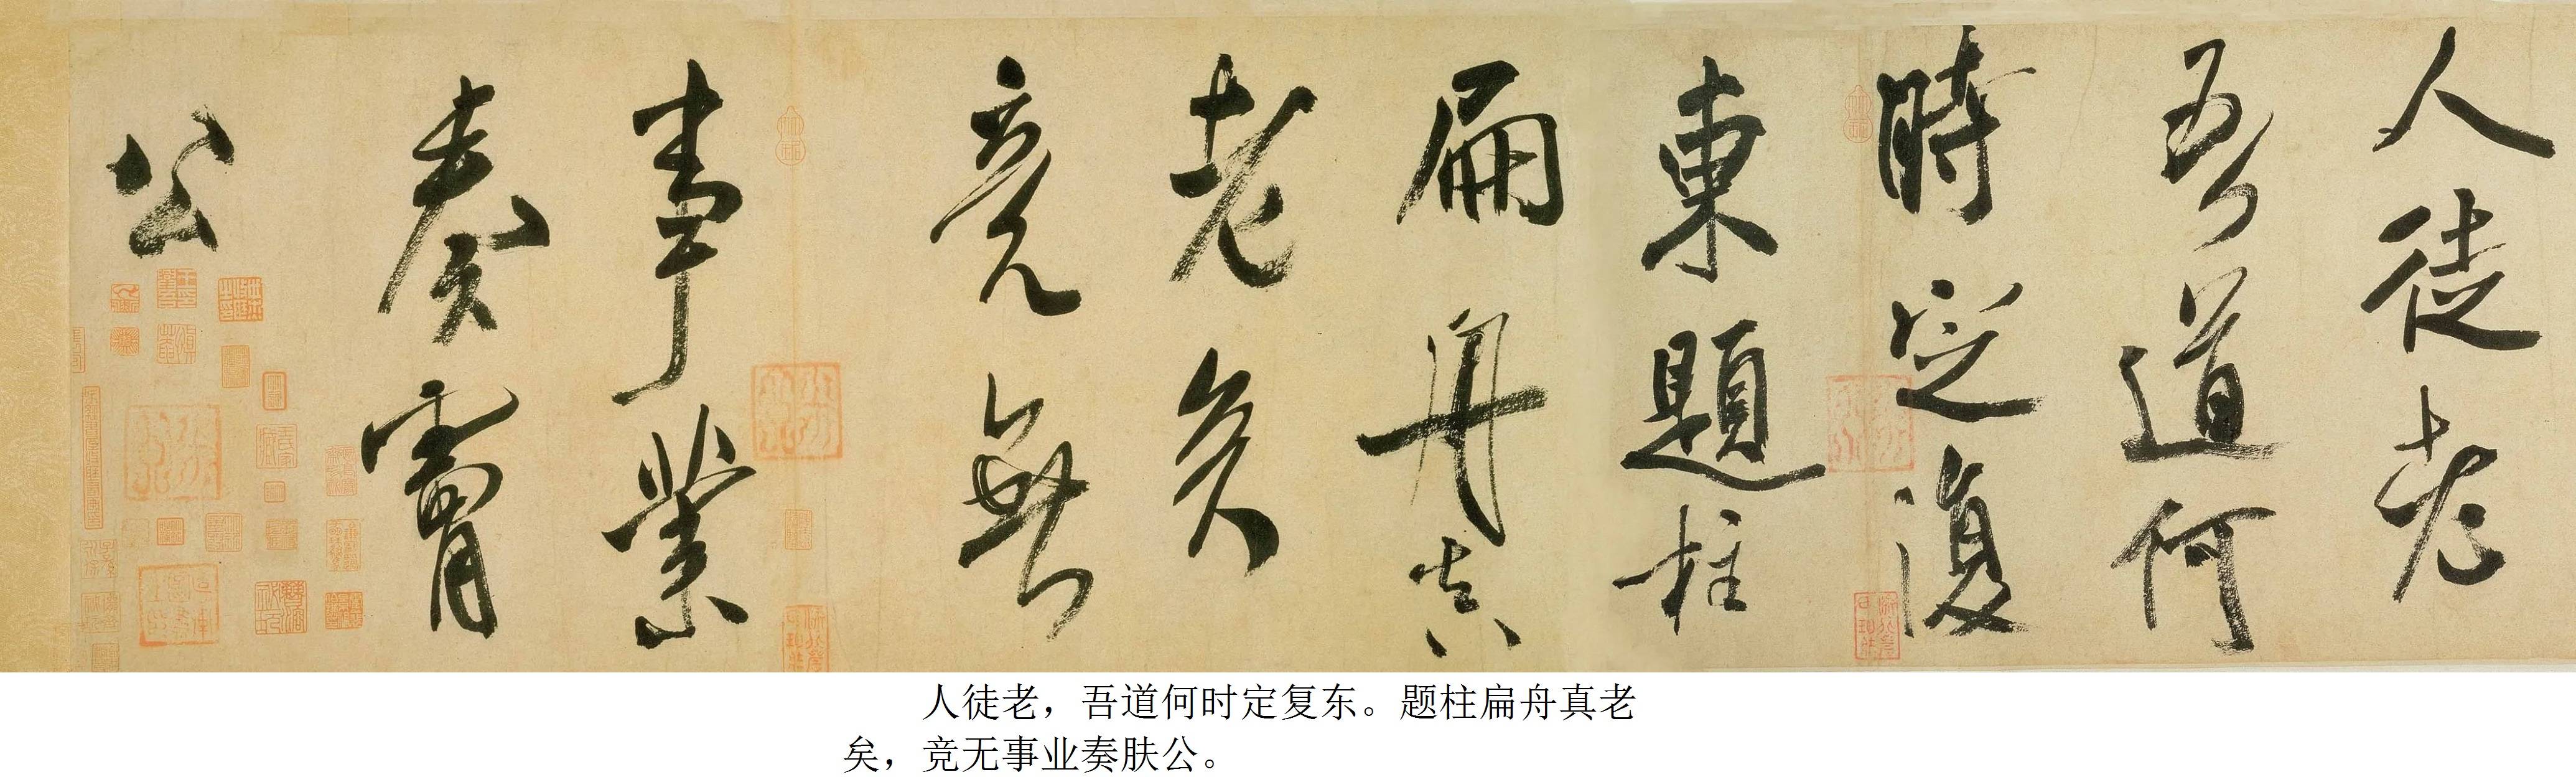 人徒老
吾道何
時定復
東題柱
扁舟真
老矣
竟無
事業
奏膚
公
人徒老，吾道何时定复东。题柱扁舟真老
矣，竞无事业奏肤公。